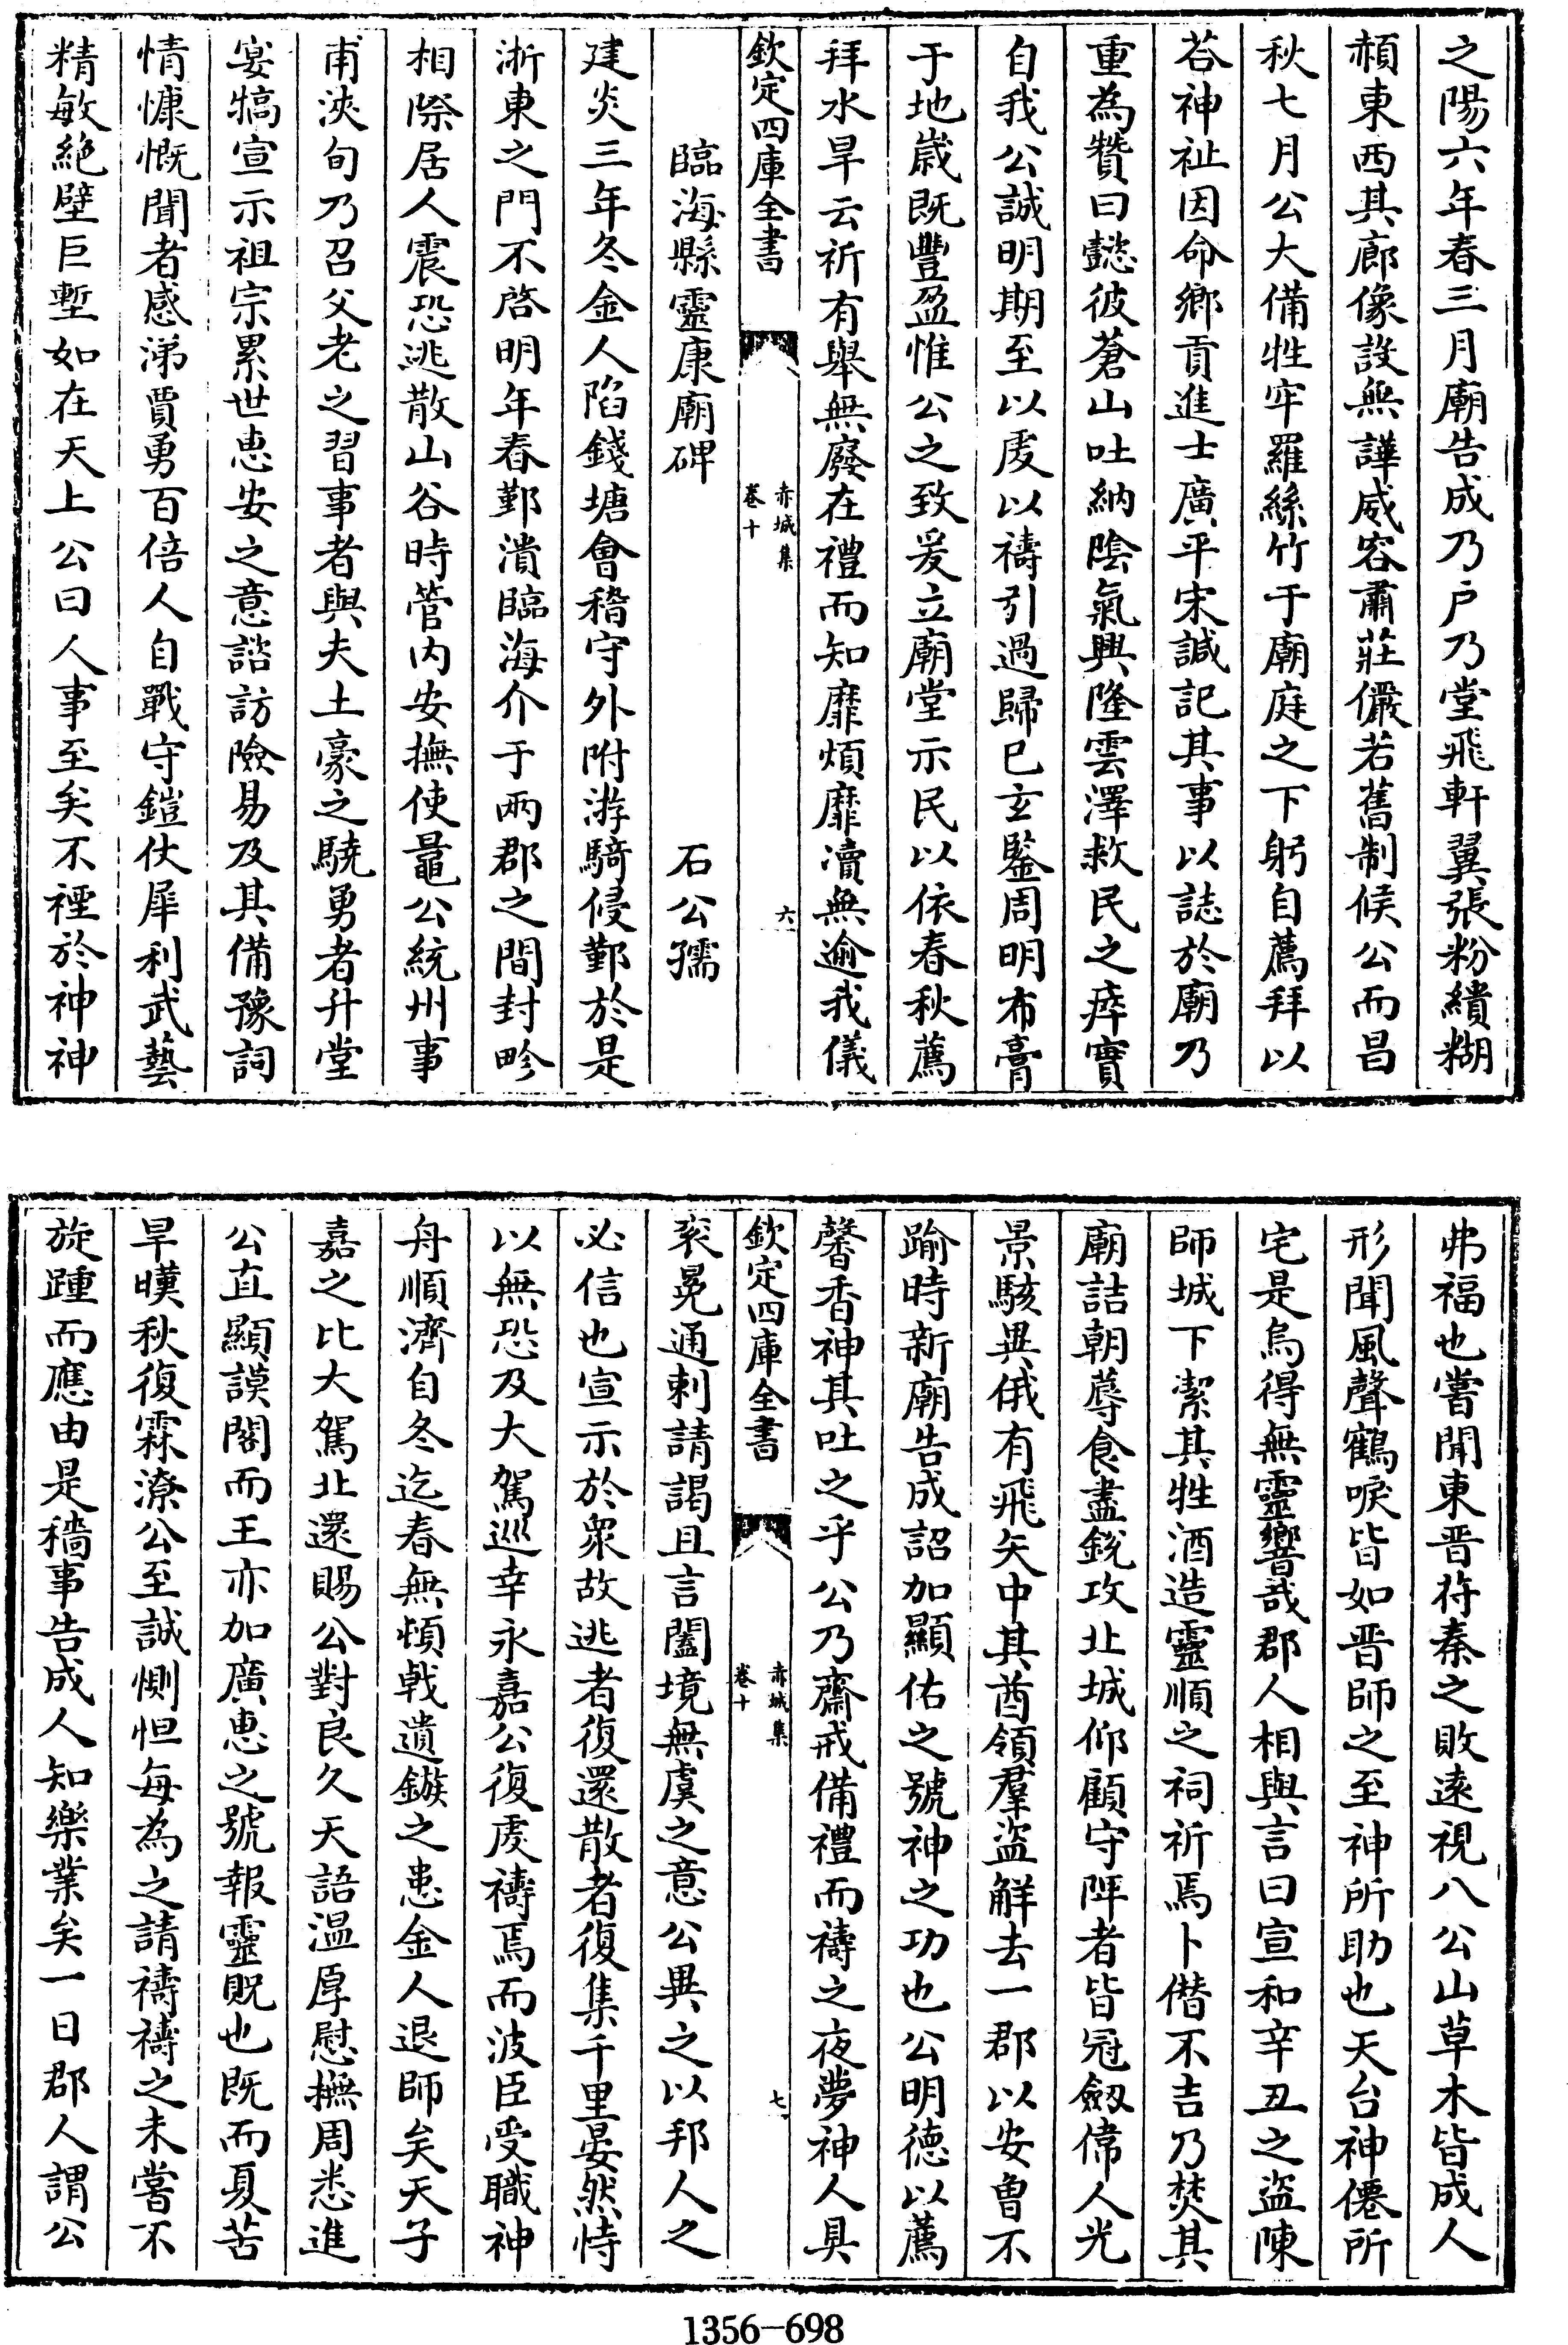 之陽六年春三月廟告成乃戶乃堂飛軒翼張粉繢糊
頳東西其廊像設無譁威容肅莊儼若舊制候公而昌
秋七月公大備牲牢羅絲竹于廟庭之下躬自薦拜以
荅神祉因命鄉貢進士廣平宋誠記其事以誌於廟乃
重為贊曰懿彼蒼山吐納陰氣興隆雲澤救民之瘁實
自我公誠明期至以虔以禱引過歸已玄鑒周明布膏
于地嵗既豐盈惟公之致爰立廟堂示民以依春秋薦
拜水旱云祈有舉無廢在禮而知靡煩靡瀆無逾我儀
欽定四庫全書
赤城集
卷十
六
臨海縣靈康廟碑
石公孺
建炎三年冬金人陷錢塘會稽守外附游騎侵鄞於是
浙東之門不啓明年春鄞潰臨海介于兩郡之間封畛
相際居人震恐逃散山谷時管内安撫使鼂公統州事
甫浹旬乃召父老之習事者與夫土豪之驍勇者升堂
宴犒宣示祖宗累世惠安之意諮訪險易及其備豫詞
情慷慨聞者感涕賈勇百倍人自戰守鎧仗犀利武藝
精敏絶壁巨塹如在天上公曰人事至矣不禋於神神
弗福也嘗聞東晋苻秦之敗遠視八公山草木皆成人
形聞風聲鶴唳皆如晋師之至神所助也天台神僊所
宅是烏得無靈響哉郡人相與言曰宣和辛丑之盜陳
師城下潔其牲酒造靈順之祠祈焉卜僭不吉乃焚其
廟詰朝蓐食盡銳攻北城仰顧守陴者皆冠劔偉人光
景駭異俄有飛矢中其酋領羣盜解去一郡以安曽不
踰時新廟告成詔加顯佑之號神之功也公明德以薦
馨香神其吐之乎公乃齋戒備禮而禱之夜夢神人具
欽定四庫全書
赤城集
卷十
七
衮冕通刺請謁且言闔境無虞之意公異之以邦人之
必信也宣示於衆故逃者復還散者復集千里晏然恃
以無恐及大駕巡幸永嘉公復虔禱焉而波臣受職神
舟順濟自冬迄春無頓戟遺鏃之患金人退師矣天子
嘉之比大駕北還賜公對良久天語温厚慰撫周悉進
公直顯謨閣而王亦加廣惠之號報靈貺也既而夏苦
旱暵秋復霖潦公至誠惻怛每為之請禱禱之未嘗不
旋踵而應由是穡事告成人知樂業矣一日郡人謂公
1356-698